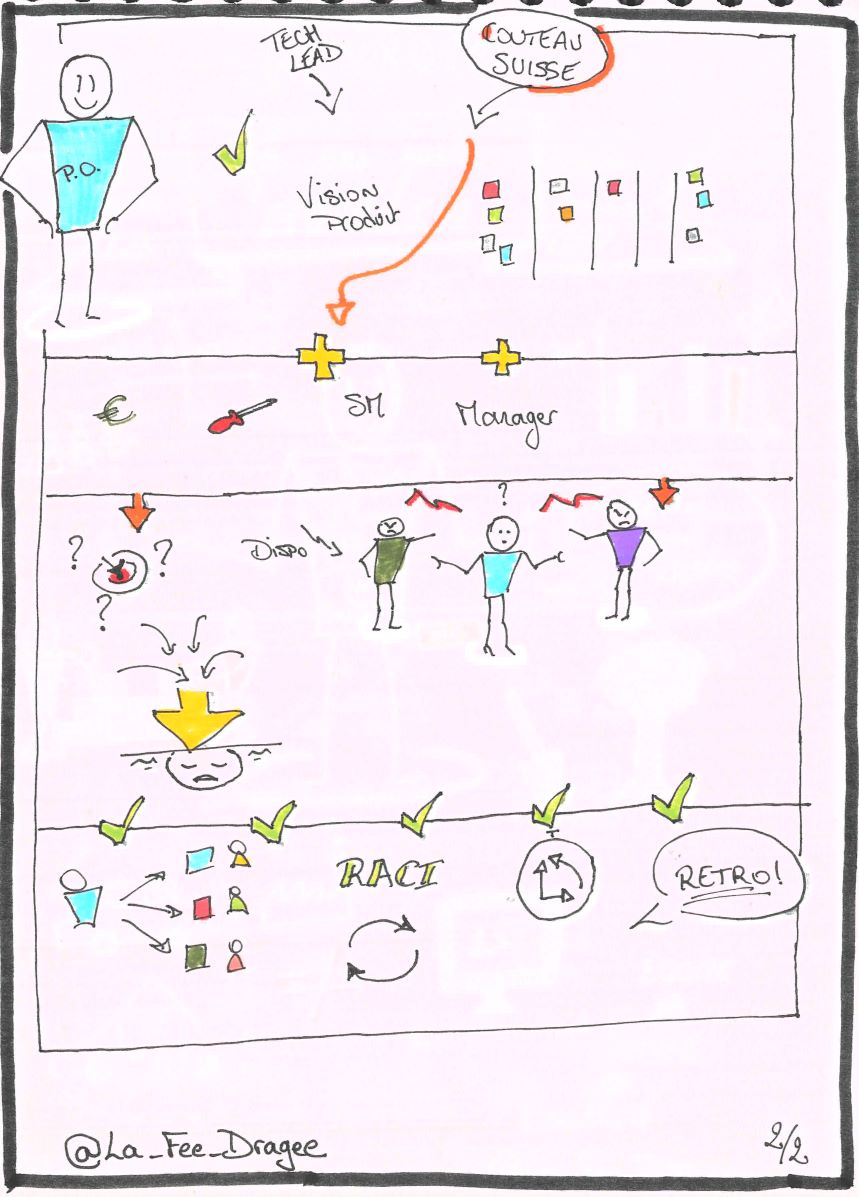 TECH
LEAD
COUTEAU
SUISSE
P.O.
Vision
Produit
€
SM
Manager
?
Dispo
?
?
?
RACI
RETRO!
@La_Fee_Dragee
2/2